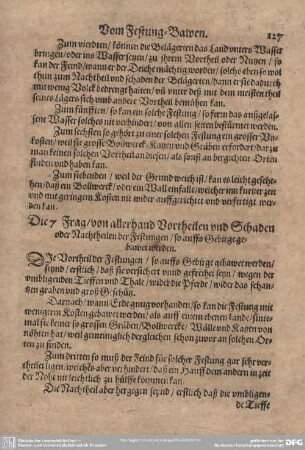 Vom Festung-Bawen. 127
Zum vierdten / können die Belägerten das Land unters Wasser
bringen / oder ins Wasser setzen / zu jhrem Vortheil oder Nutzen / so
kan der Feind / wann er der Deiche mächtig worden / solche eben so wol
thun zum Nachtheil und schaden der Belägerten / dann er sie dadurch
mit weng Volck bedrenget halten / und unter deß mit dem meisten theil
seines Lägers sich umb andere Vortheil bemühen kan.
Zum fünfften / so kan ein solche Festung / so fern das außgelas-
sene Wasser solches nit verhindert / von allen seiten bestürmet werden.
Zum sechsten so gehört zu einer solchen Festung ein grosser Un-
kosten / weil sie grosse Bollwerck / Katzen und Gräben erfordert / dar zu
man keinen solchen Vortheil an diesen / als sonst an bergechten Orten
finden und haben kan.
Zum siebenden / weil der Grund weich ist / kan es leicht gesche-
hen / daß ein Bollwerck / oder ein Wall einfalle / welcher inn kurtzer zeit
und mit geringem Kosten nit wider auffgerichtet und verfertigt wer-
den kan.
Die 7 Frag / von allerhand Vortheilen und Schaden
oder Nachtheilen der Festungen / so auffs Gebirge ge-
bawet werden.
DJe Vortheil der Festungen / so auffs Gebirge gebawet werden /
seynd / erstlich / daß sie versichert unnd gefreihet seyn / wegen der
umbligenden Tieffen und Thale / wider die Pferde / wider das schan-
tzen graben und groß Geschütz.
Darnach / wann Erdt gnug vorhanden / so kan die Festung mit
wengerm Kosten gebawet werden / als auff einem ebenen lande / sinte-
mal sie keiner so grossen Gräben / Bollwercke / Wälle und Katzen von
nöhten hat / weil gemeiniglich dergleichen schon zuvor an solchen Or-
ten zu finden.
Zum dritten so muß der Feind für solcher Festung gar sehr ver-
theilet ligen / welches aber verhindert / daß ein Hauff dem andern in zeit
der Noht nit leichtlich zu hülffe kommen kan.
Die Nachtheil aber hergegen seynd / erstlich daß die umbligen-
de Tieffe